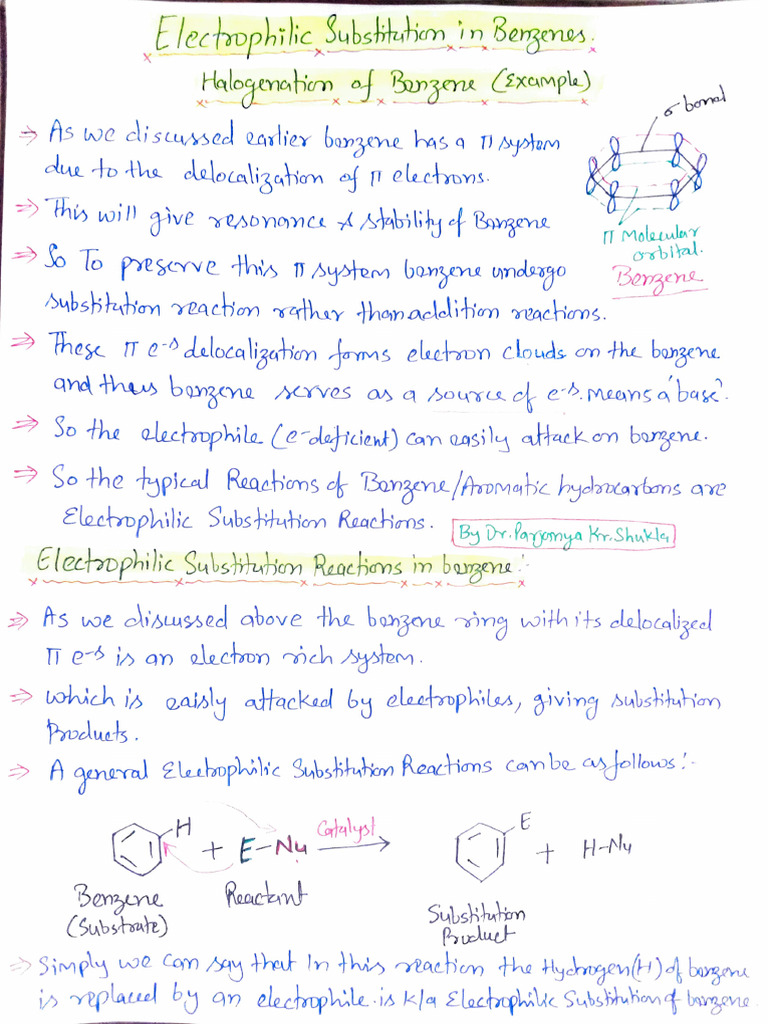 Electrophilic Substitution in Benzenes.
Halogenation of Benzene (Example)
σ bond
⇒ As we discussed earlier benzene has a π system
due to the delocalization of π electrons.
⇒ This will give resonance & stability of Benzene
π Molecular
orbital.
Benzene
⇒ So To preserve this π system benzene undergo
substitution reaction rather than addition reactions.
⇒ These π e-s delocalization forms electron clouds on the benzene
and thus benzene serves as a source of e-s. means a 'base'.
⇒ So the electrophile (e-deficient) can easily attack on benzene.
⇒ So the typical Reactions of Benzene/Aromatic hydrocarbons are
Electrophilic Substitution Reactions.
By Dr. Parjanya Kr. Shukla
Electrophilic Substitution Reactions in benzene:-
⇒ As we discussed above the benzene ring with its delocalized
π e-s is an electron rich system.
⇒ which is eaisly attacked by electrophiles, giving substitution
Products.
⇒ A general Electrophilic Substitution Reactions can be as follows:-
H + E-Nu Catalyst E + H-Nu
Benzene
(Substrate)
Reactant
Substitution
Product
⇒ Simply we can say that in this reaction the Hydrogen(H) of benzene
is replaced by an electrophile is k/a Electrophilic Substitution of benzene.